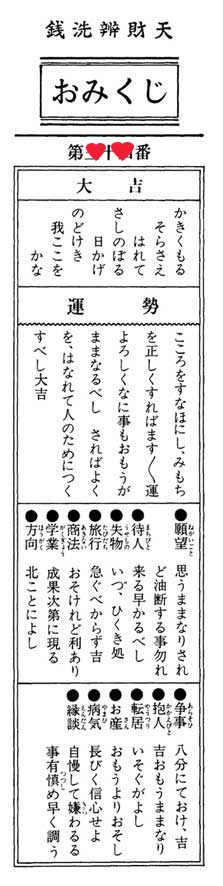 銭洗辨財天
おみくじ
第 十 番
大吉
かきくもる
そらさえ
はれて
さしのぼる
日かげ
のどけき
我ここを
かな
運勢
こころをすなほにし、みもち
を正しくすればます〱運
よろしくなに事もおもうが
ままなるべし さればよく
を、はなれて人のためにつく
すべし大吉
●願望 思うままなりされ
ど油断する事勿れ
●待人 来る早かるべし
●失物 いづ、ひくき処
●旅行 急ぐべからず吉
●商法 おそけれど利あり
●学業 成果次第に現る
●方向 北ことによし
●争事 八分にておけ、吉
●抱人 吉おもうままなり
●転居 いそぐがよし
●お産 おもうよりおそし
●病気 長びく信心せよ
●縁談 自慢して嫌わるる
事有慎め早く調う